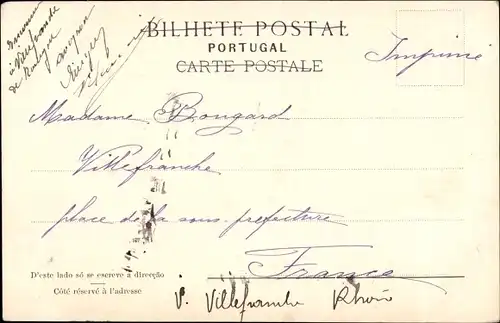 à Villefranche
de Rouergue
Aveyron
BILHETE POSTAL
PORTUGAL
CARTE POSTALE
Imprimé
Madame Bougard
Villefranche
place de la sous-prefecture
France
D'este lado só se escreve a direcção
Côté réservé à l'adresse
V. Villefranche Rhône